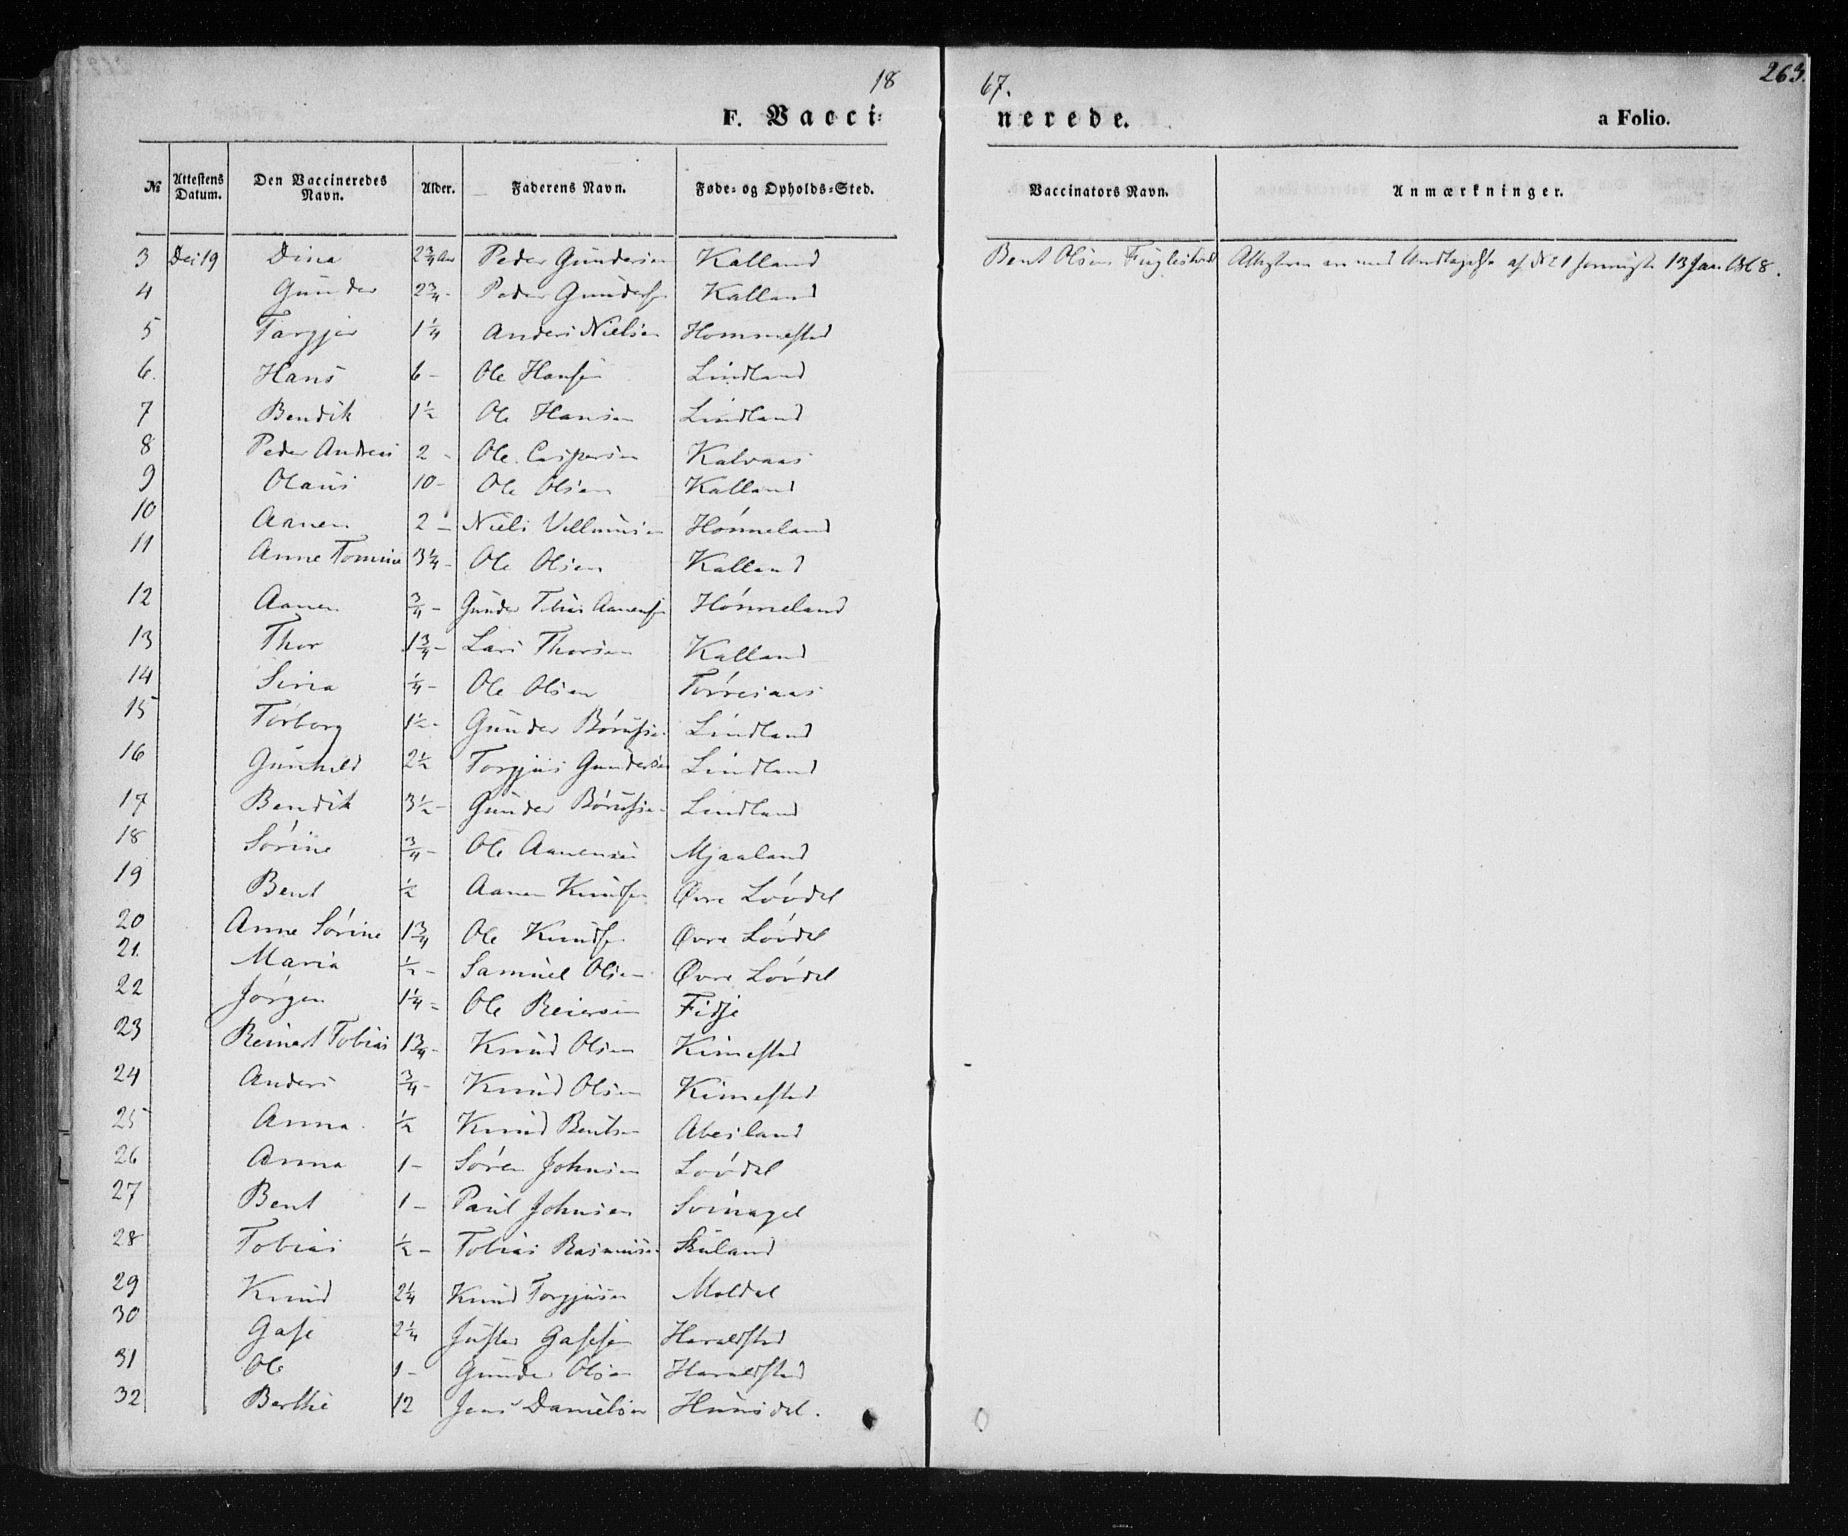 18 67. 263.
F. Vacci= nerede. a Folio.
№ Attestens Datum. Den Vaccineredes Navn. Alder. Faderens Navn. Føde- og Opholds-Sted. Vaccinators Navn. Anmærkninger.
3 Dec 19 Dina 2 3/4 Aar Peder Gundersen Kalland Bent Olsen Fuglestvedt 13 Jan 1868.
4 Gunder 2 3/4 - Peder Gundersen Kalland
5 Targjer 1 1/4 Anders Nielsen Hommestad
6. Hans 6 - Ole Hansen Lindland
7 Bendik 1 1/2 Ole Hansen Lindland
8 Peder Andreas 2 - Ole Caspersen Kalvaas
9 Olaus 10 - Ole Olsen Kalland
10 Aanen 2 - Niels Villumsen Hønneland
11 Anne Tomine 3 1/4 - Ole Olsen Kalland
12 Aanen 3/4 - Gunder Tobias Aanensen Hønneland
13 Thor 1 3/4 - Lars Thorsen Kalland
14 Siria 1/4 - Ole Olsen Tørresaas
15 Torborg 1 1/2 - Gunder Børufsen Lindland
16 Gunhild 2 1/2 Torgjus Gundersen Lindland
17 Bendik 3 1/2 - Gunder Børufsen Lindland
18 Sørine 3/4 - Ole Aanensen Mjaaland
19 Bent 1/2 Aanen Knudsen Øvre Løvdal
20 Anne Sørine 1 3/4 Ole Knudsen Øvre Løvdal
21. Maria 1/2 - Samuel Olsen Øvre Løvdal
22 Jørgen 1 1/4 - Ole Reiersen Fidje
23 Reinert Tobias 1 3/4 - Knud Olsen Kimestad
24 Anders 3/4 - Knud Olsen Kimestad
25 Anna 1/2 Knud Bentsen Abesland
26 Anna 1 - Søren Johnsen Løvdal
27 Bent 1 - Paul Johnsen
28 Tobias 1/2 - Tobias Rasmusen Skuland
29 Knud 2 1/4 Knud Torgjusen Moldal
30 Gase 2 1/4 Juster Gasesen Haraldstad
31 Ole 1 - Gunder Olsen Haraldstad
32 Berthe 12 Jens Danielsen Hunsdal.